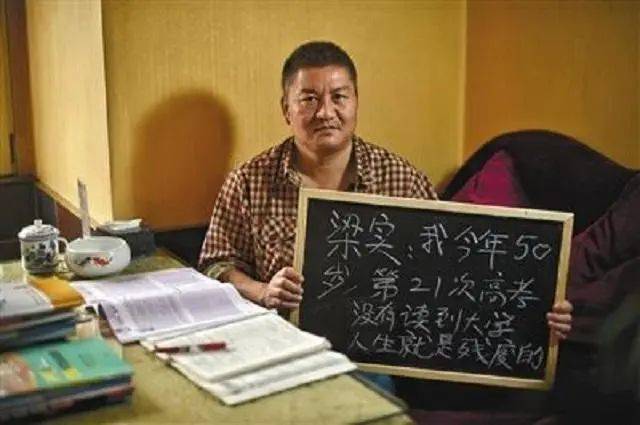 梁实：我今年50
岁 第21次高考
没有读到大学
人生就是残废的